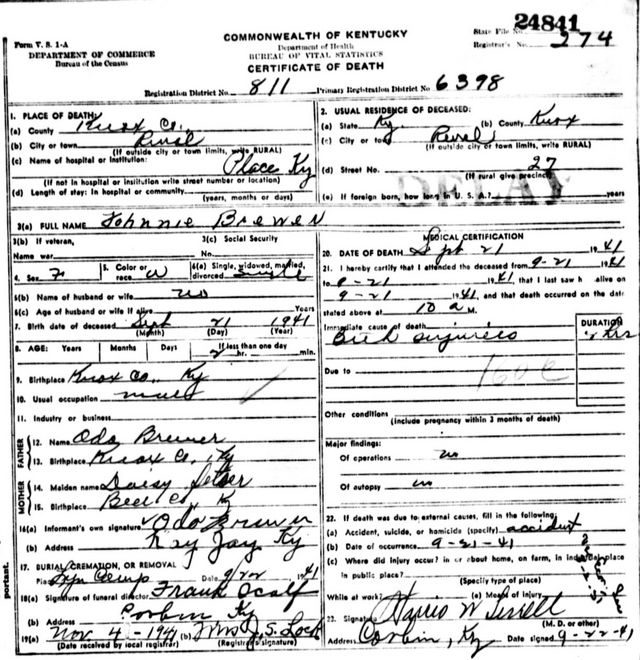 24841
Form V. S. 1-A
COMMONWEALTH OF KENTUCKY
State File No.
DEPARTMENT OF COMMERCE
Bureau of the Census
Department of Health
BUREAU OF VITAL STATISTICS
Registrar's No. 274
CERTIFICATE OF DEATH
Registration District No. 811 Primary Registration District No. 6398
1. PLACE OF DEATH:
(a) County Knox Co.
(b) City or town Rural
(If outside city or town limits, write RURAL)
(c) Name of hospital or institution: Place Ky
(If not in hospital or institution write street number or location)
(d) Length of stay: In hospital or community
(years, months or days)
2. USUAL RESIDENCE OF DECEASED:
(a) State Ky (b) County Knox
(c) City or town Rural
(If outside city or town limits, write RURAL)
(d) Street No. 27
(If rural give precinct)
DELAY
(e) If foreign born, how long in U. S. A.? years
3(a) FULL NAME Johnnie Brewer
3(b) If veteran,
Name war
3(c) Social Security
No.
4. Sex F
5. Color or race W
6(a) Single, widowed, married, divorced Single
6(b) Name of husband or wife no
6(c) Age of husband or wife if alive Years
7. Birth date of deceased Sept 21 1941
(Month) (Day) (Year)
8. AGE: Years Months Days If less than one day
2 hr. min.
9. Birthplace Knox Co., Ky
10. Usual occupation
11. Industry or business
FATHER
12. Name Oda Brewer
13. Birthplace Knox Co, Ky
MOTHER
14. Maiden name Daisy
15. Birthplace Bell Co, Ky
16(a) Informant's own signature Oda Brewer
(b) Address Kay Jay, Ky
17. BURIAL, CREMATION, OR REMOVAL
Place Date 9/22 1941
18(a) Signature of funeral director Frank
(b) Address Corbin Ky
19(a) Nov 4 - 1941 (b) Mrs J. S. Lock
(Date received by local registrar) (Registrar's signature)
MEDICAL CERTIFICATION
20. DATE OF DEATH Sept 21 1941
21. I hereby certify that I attended the deceased from 9-21 1941
to 9-21 1941, that I last saw h alive on
9-21 1941, and that death occurred on the date
stated above at 10 a M.
Immediate cause of death
Birth injuries
DURATION
2 hrs
Due to
160c
Other conditions
(Include pregnancy within 3 months of death)
Major findings:
Of operations no
Of autopsy no
22. If death was due to external causes, fill in the following:
(a) Accident, suicide, or homicide (specify) accident
(b) Date of occurrence 9-21-41
(c) Where did injury occur? in or about home, on farm, in industrial place
in public place?
(Specify type of place)
While at work? (e) Means of injury
23. Signature Harris W Terrell
(M. D. or other)
Address Corbin, Ky Date signed 9-22-41
portant.